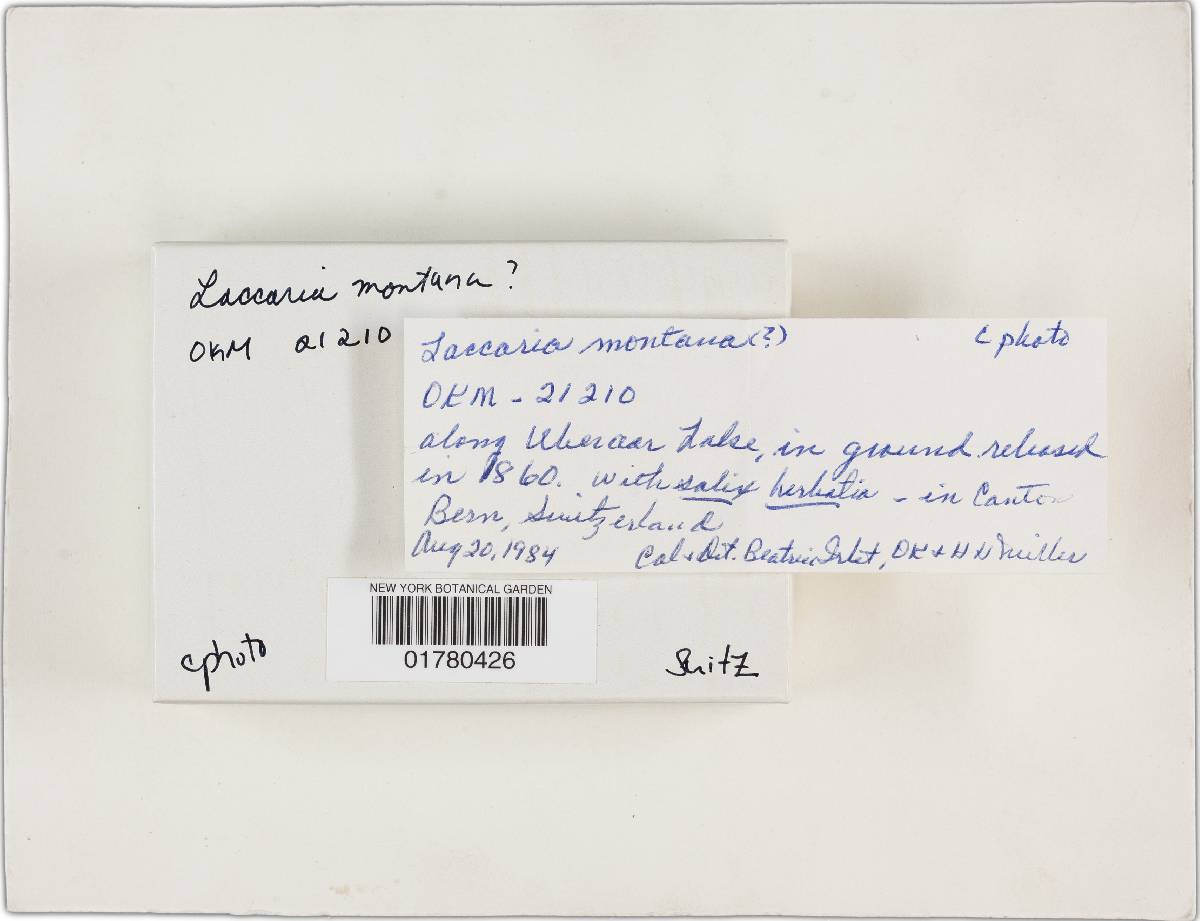 Laccaria montana ?
OKM 21210
Laccaria montana (?) c photo
OKM - 21210
along Lake, in ground released
in 1860. with salix herbatia - in Canton
Bern, Switzerland
Aug 20, 1984 Col & Det. Beatrice Irlet, OK & HH Miller
c photo
NEW YORK BOTANICAL GARDEN
01780426
Switz